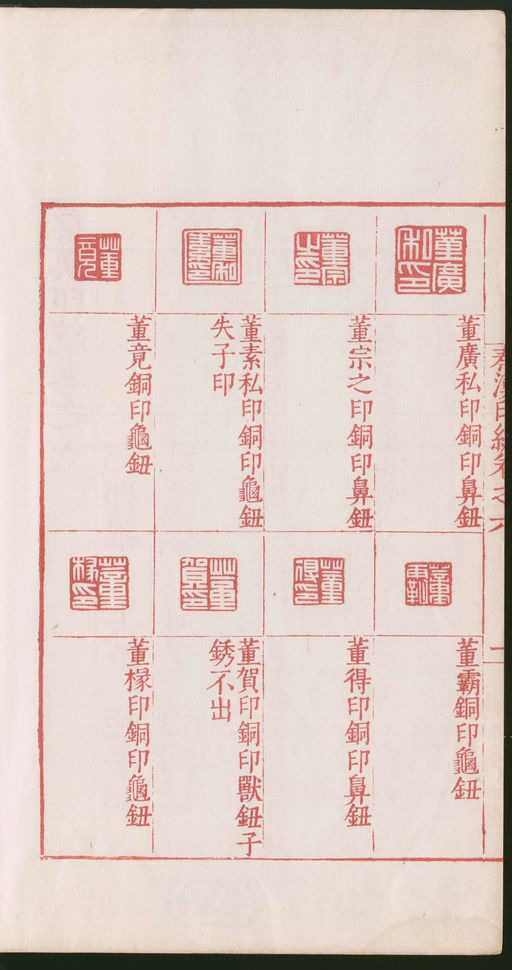 秦漢印統卷之六
二
董廣私印
董廣私印銅印鼻鈕
董宗之印
董宗之印銅印鼻鈕
董素私印
董素私印銅印龜鈕
失子印
董竟
董竟銅印龜鈕
董霸
董霸銅印龜鈕
董得印
董得印銅印鼻鈕
董賀印
董賀印銅印獸鈕子
銹不出
董椽印
董椽印銅印龜鈕